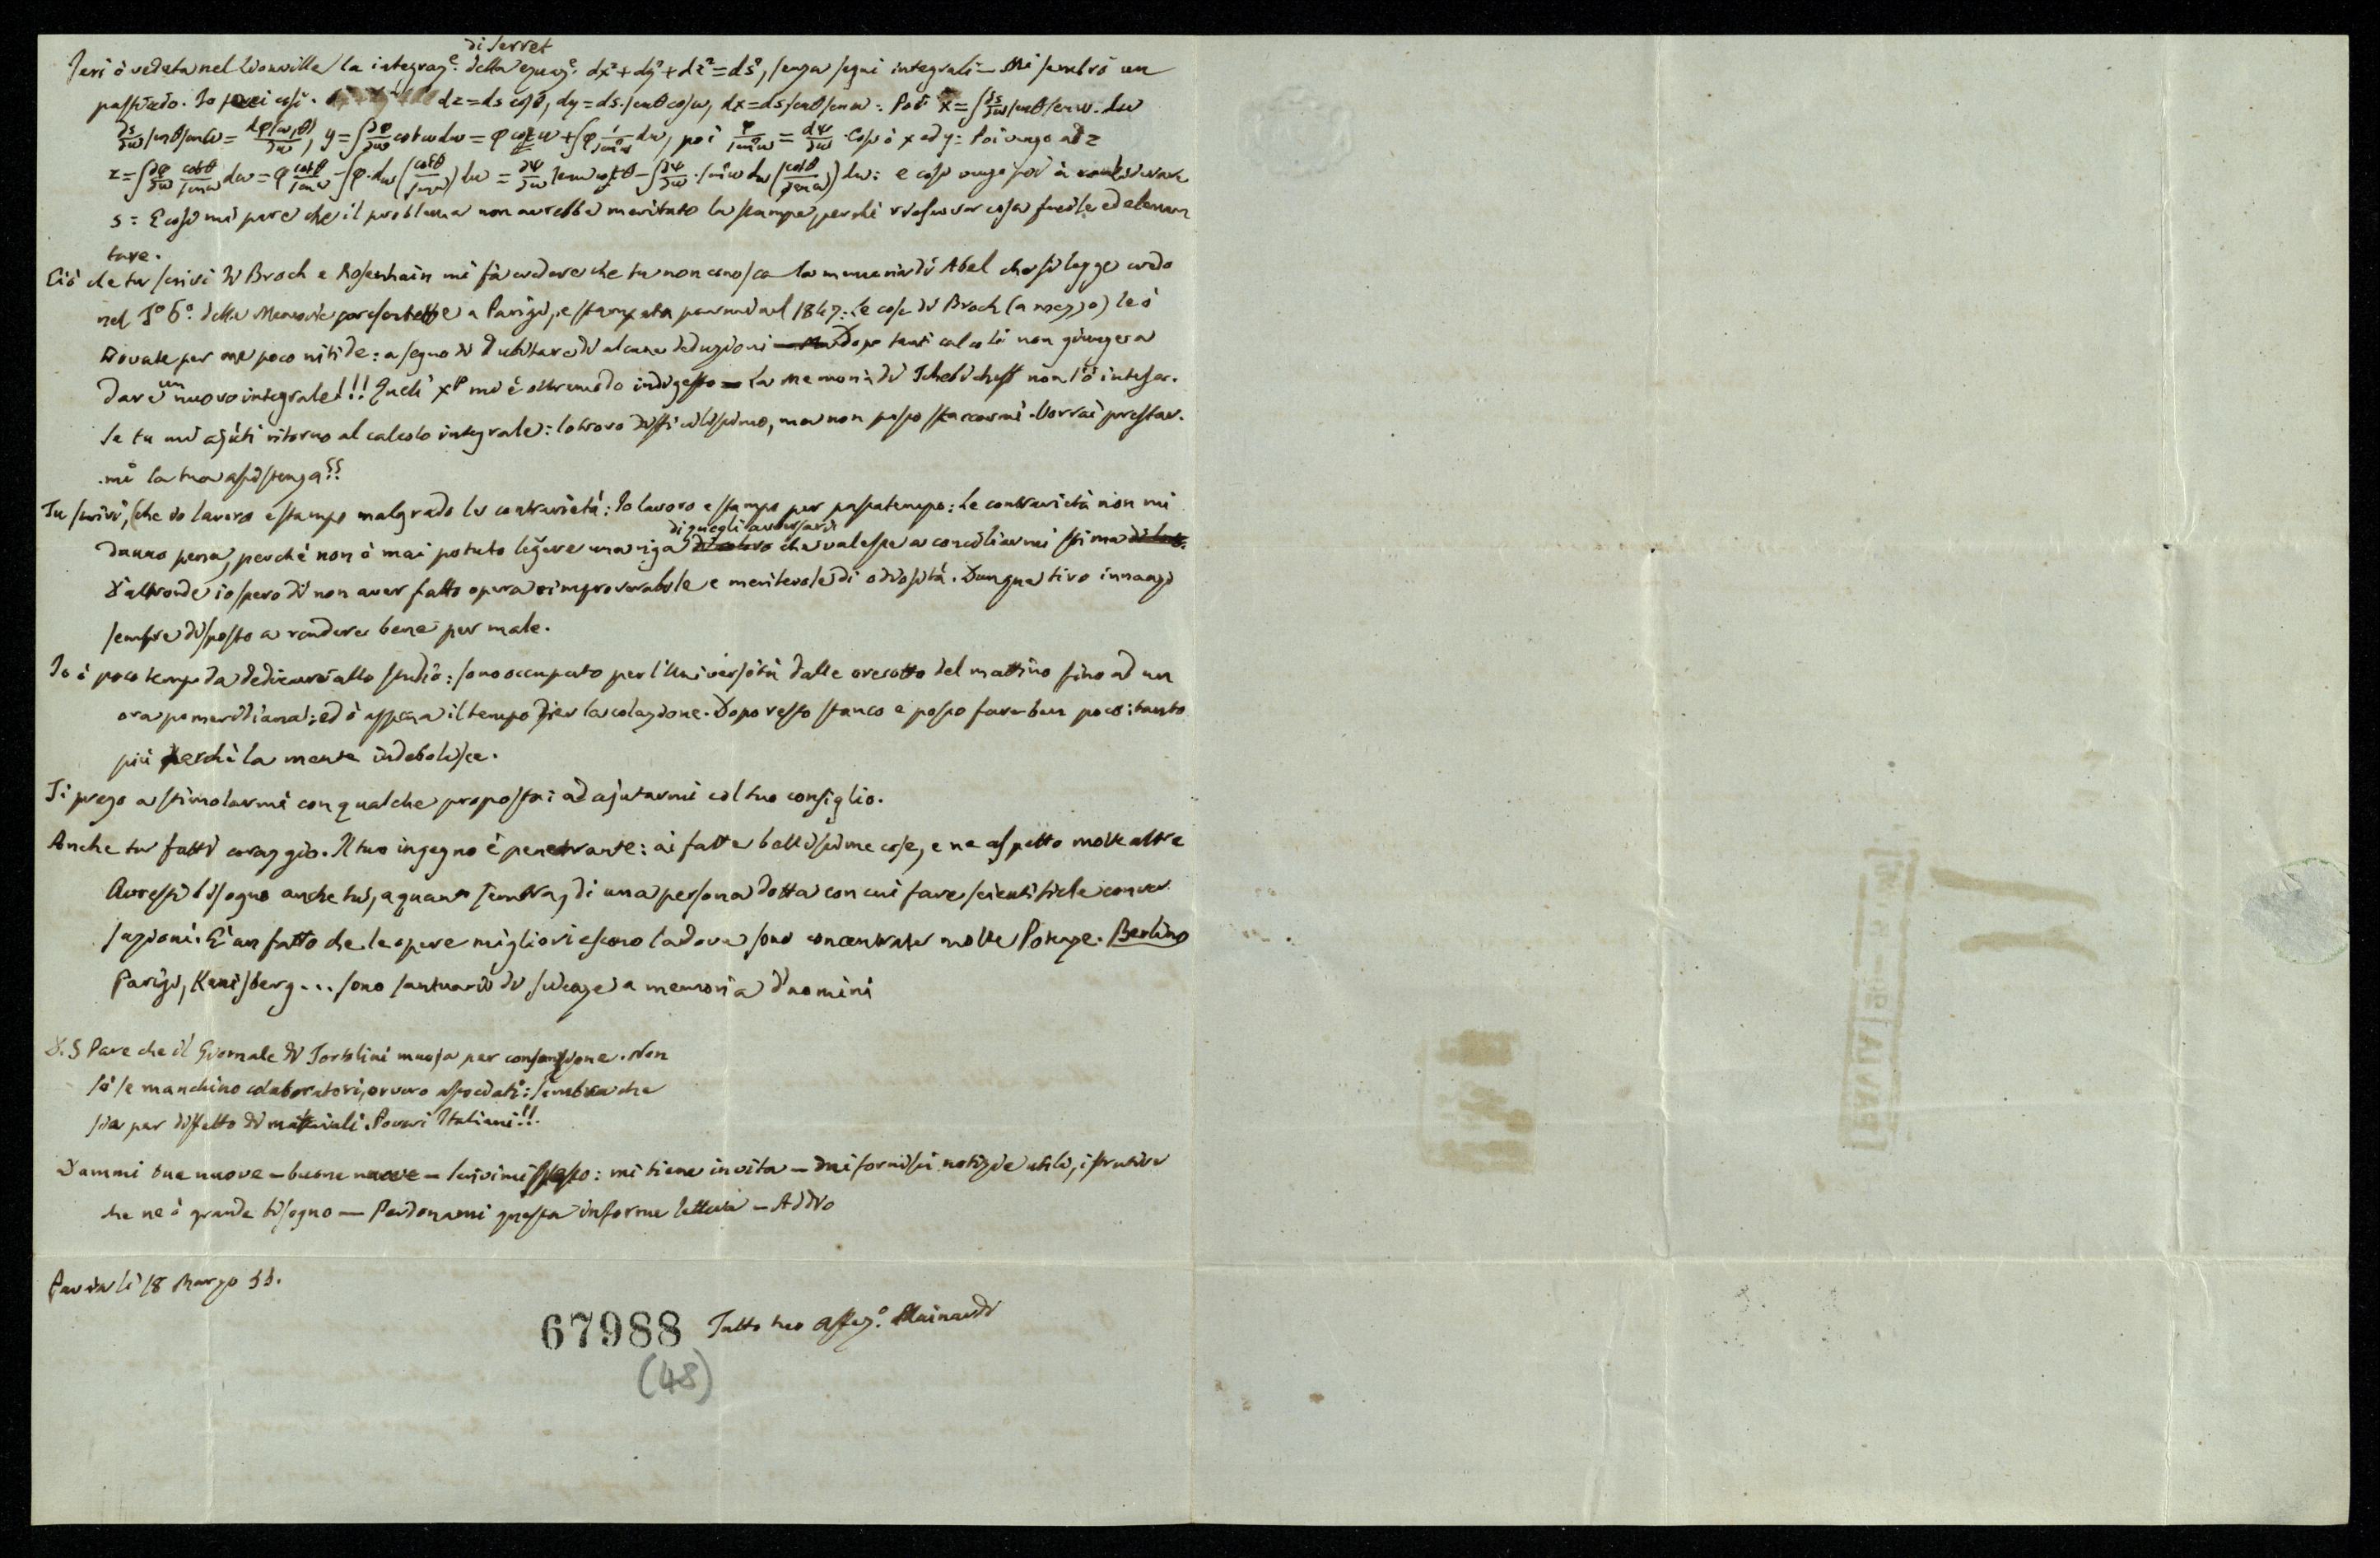 di Serret
Jeri ò veduta nel Liouville la integraz.e della equaz.e dx²+dy²+dz²=ds², senza segni integrali – Mi sembrò un
pasticcio. Io farei così. dz=ds cosθ, dy=ds.senθcosω, dx=ds senθsenω: Poi x=∫ds/dω senθsenω.dω
ds/dω senθsenω = dφ(ω,θ)/dω, y=∫dφ/dω cotω dω = φ cotω+∫φ 1/sen²ω dω, poi φ/sen²ω = dψ/dω. Così ò x ed y: Poi vengo ad z
z=∫dφ/dω cotθ/senω dω = φ cotθ/senω – ∫φ.dω(cotθ/senω)dω = dψ/dω senω cotθ – ∫dψ/dω.sen²ω dω(cotθ/senω)dω: e così vengo poi a
s: E così mi pare che il problema non avrebbe meritato la stampa, perchè cosa facile ed elemen
tare.
Ciò che tu scrivi di Broch e Rosenhain mi fà credere che tu non conosca la memoria di Abel che si legge credo
nel T.o 6.o delle Memorie presentate a Parigi, e stampata parmi nel 1847: Le cose di Broch (a mezzo) le ò
trovate per me poco nitide: a segno di dubitare di alcune deduzioni dopo tanti calcoli non giunge a
dare un nuovo integrale!!! Quel xᵖ mi è oltremodo indigesto – La memoria di Tchebicheff non l'ò intesa.
Se tu mi ajuti ritorno al calcolo integrale: lo trovo difficilissimo, ma non posso staccarmi. Vorrai prestar.
.mi la tua assistenza??
Tu scrivi, che io lavoro e stampo malgrado le contrarietà: Io lavoro e stampo per passatempo: le contrarietà non mi
di quegli avversarii
danno pena, perchè non ò mai potuto legere una riga di loro che valesse a conciliarmi stima
D'altronde io spero di non aver fatto opera rimproverabile e meritevole di odiosità. Dunque tiro innanzi
sempre disposto a rendere bene per male.
Io ò poco tempo da dedicare allo studio: sono occupato per l'Università dalle ore otto del mattino fino ad un
ora pomeridiana: ed ò appena il tempo per la colazione. Dopo resto stanco e posso fare ben poco: tanto
più perchè la mente indebolisce.
Ti prego a stimolarmi con qualche proposta: ad ajutarmi col tuo consiglio.
Anche tu fatti coraggio. Il tuo ingegno è penetrante: ai fatte bellissime cose, e ne aspetto molte altre
Avresti bisogno anche tu, a quanto sembra, di una persona dotta con cui fare scientifiche conver
sazioni. E' un fatto che le opere migliori escono là dove sono concentrate molte Potenze. Berlino
Parigi, Kenisberg... sono santuarii di scienze a memoria d'uomini
P.S Pare che il Giornale di Tortolini muoja per consunzione. Non
sò se manchino colaboratori, ovvero associati: sembra che
sia per diffetto di materiali. Poveri Italiani!!.
Dammi tue nuove – buone nuove – scrivimi spesso: mi tiene in vita – mi fornisci notizie utili, istruttive
che ne ò grande bisogno — Perdonami questa informe lettera – Addio
Pavia li 18 Marzo 55.
67988 Tutto tuo affez.o Mainardi
(48)
PAVIA